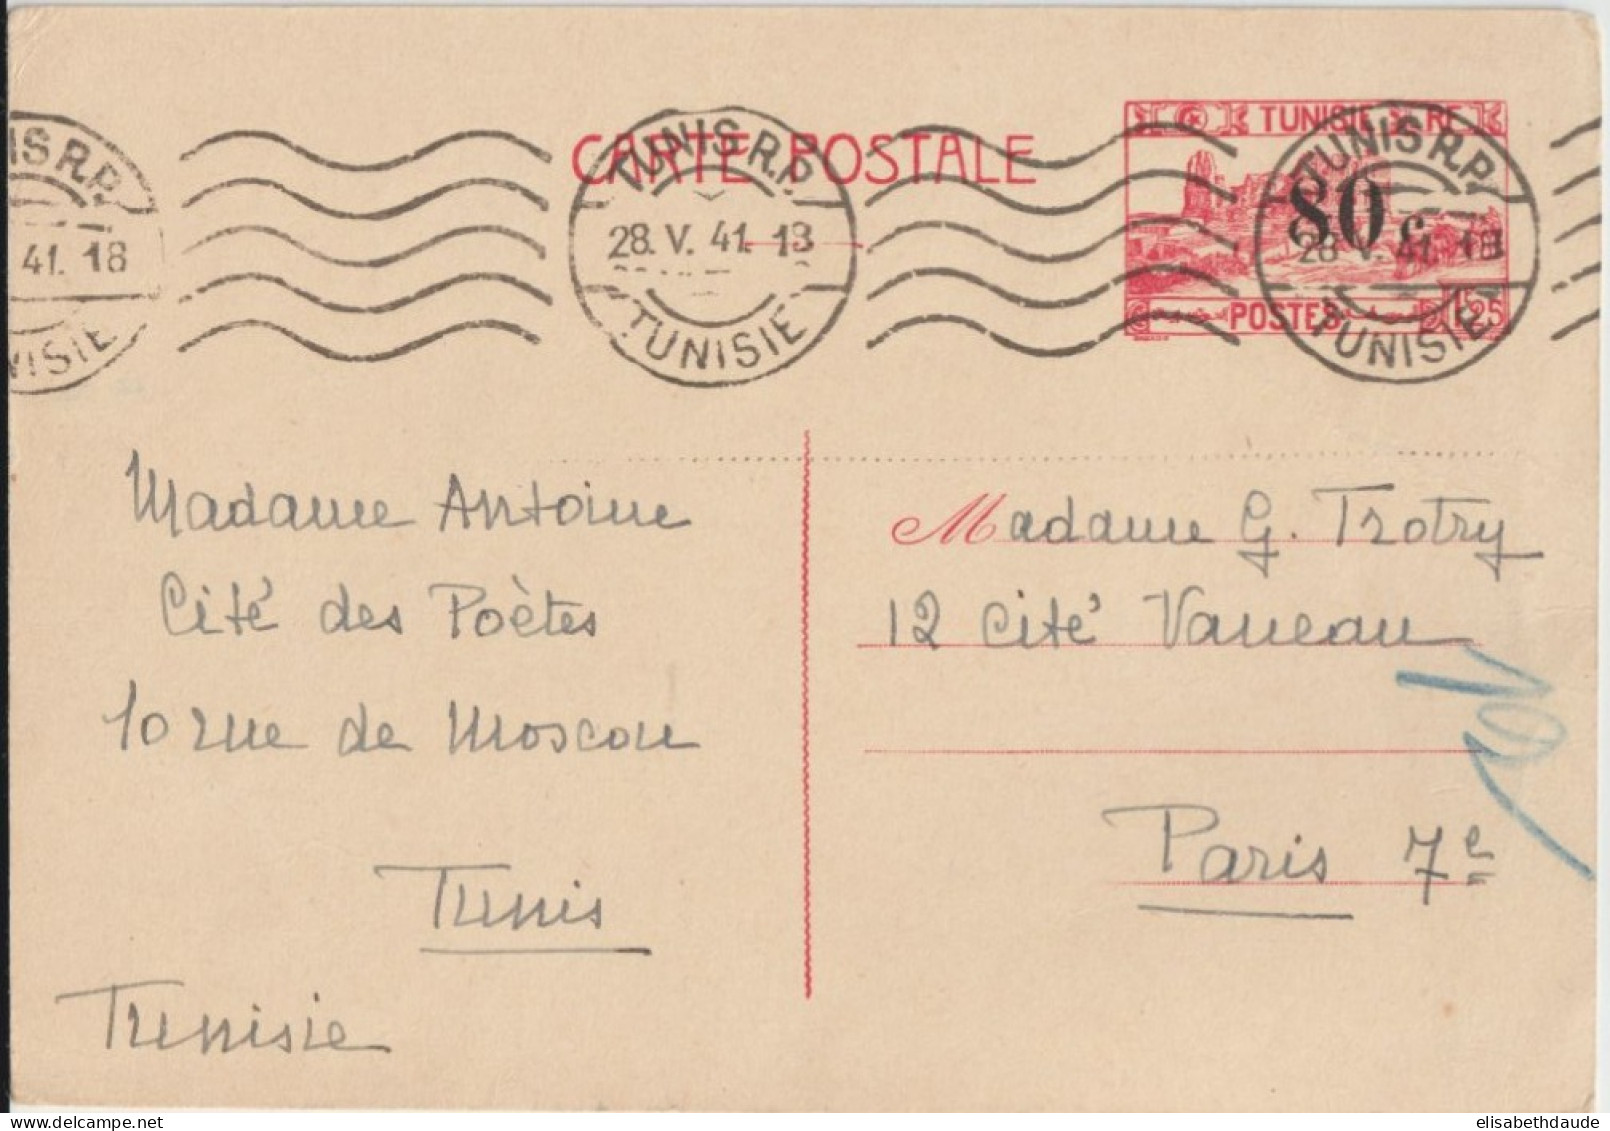 TUNISIE RF
CARTE POSTALE
80 c
POSTES 1F25
NIS R.P.
41. 18
NISIE
TUNIS R.P.
28. V. 41. 18
TUNISIE
TUNIS R.P.
28. V. 41. 18
TUNISIE
Madame Antoine
Cité des Poètes
10 rue de Moscou
Tunis
Tunisie
Madame G. Trotry
12 Cité Vaneau
Paris 7e
elisabethdaude